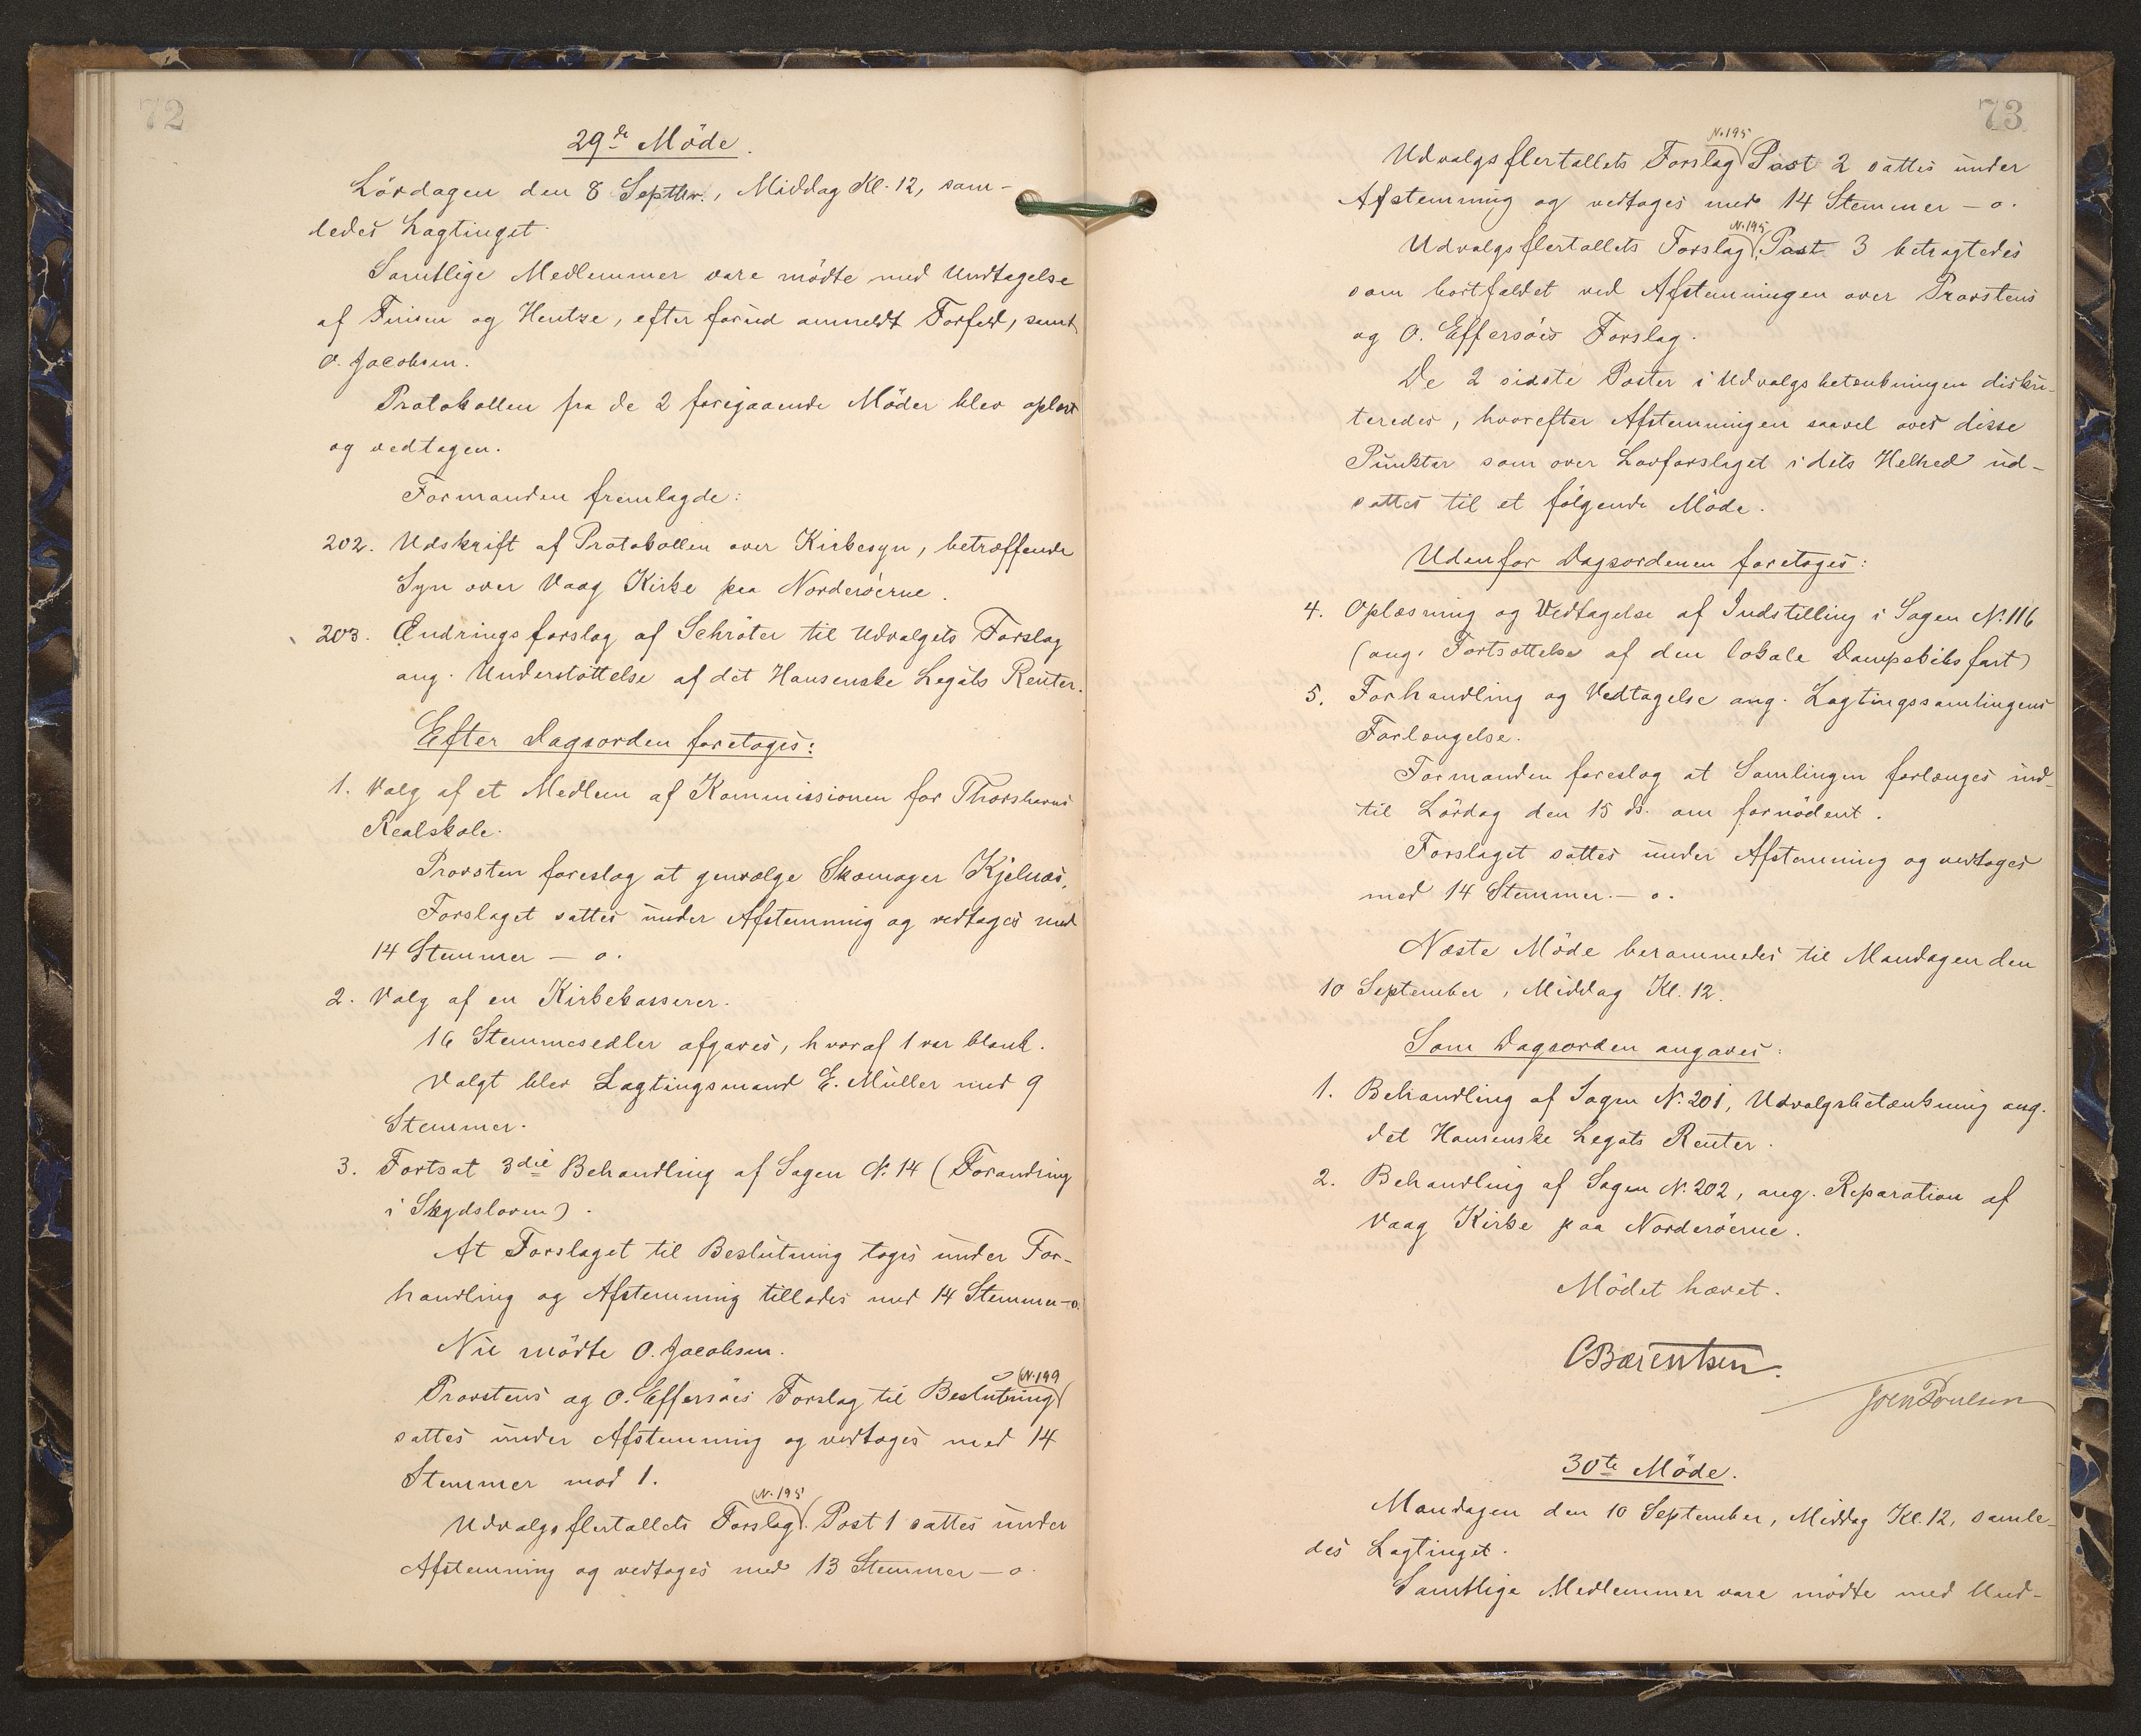 72
29de Möde.
Lördagen den 8 Septbr., Middag Kl. 12, sam-
ledes Lagtinget.
Samtlige Medlemmer vare mödte med Undtagelse
af Finsen og Hentze, efter forud anmeldt Forfald, samt
O. Jacobsen.
Protokollen fra de 2 foregaaende Möder blev oplæst
og vedtagen.
Formanden fremlagde:
202. Udskrift af Protokollen over Kirkesyn, betræffende
Syn over Vaag Kirke paa Norderöerne.
203. Ændringsforslag af Schröter til Udvalgets Forslag
ang. Understöttelse af det Hansenske Legats Renter.
Efter Dagsorden foretoges:
1. Valg af et Medlem af Kommissionen for Thorshavns
Realskole.
Provsten foreslog at genvælge Skomager Kjelnæs.
Forslaget sattes under Afstemning og vedtoges med
14 Stemmer – o.
2. Valg af en Kirkekasserer.
16 Stemmesedler afgaves, hvoraf 1 var blank.
Valgt blev Lagtingsmand E. Müller med 9
Stemmer.
3. Fortsat 3die Behandling af Sagen N. 14 (Forandring
i Skydsloven).
At Forslaget til Beslutning toges under For-
handling og Afstemning tillodes med 14 Stemmer – o.
Nu mödte O. Jacobsen.
N. 199
Provstens og O. Effersöes Forslag til Beslutning
sattes under Afstemning og vedtoges med 14
Stemmer mod 1.
N. 195
Udvalgsflertallets Forslag. Post 1 sattes under
Afstemning og vedtoges med 13 Stemmer – o.
73
N. 195
Udvalgsflertallets Forslag Post 2 sattes under
Afstemning og vedtoges med 14 Stemmer – o.
N. 195
Udvalgsflertallets Forslag, Post 3 betragtedes
som bortfaldet ved Afstemningen over Provstens
og O. Effersöes Forslag.
De 2 sidste Poster i Udvalgsbetænkningen disku-
teredes, hvorefter Afstemningen saavel over disse
Punkter som over Lovforslaget i dets Helhed ud-
sattes til et fölgende Möde.
Udenfor Dagsordenen foretoges:
4. Oplæsning og Vedtagelse af Indstilling i Sagen N. 116
(ang. Fortsættelse af den lokale Dampskibsfart)
5. Forhandling og Vedtagelse ang. Lagtingssamlingens
Forlængelse.
Formanden foreslog at Samlingen forlænges ind-
til Lördag den 15 ds. om fornödent.
Forslaget sattes under Afstemning og vedtoges
med 14 Stemmer. – o.
Næste Möde berammedes til Mandagen den
10 September, Middag Kl. 12.
Som Dagsorden angaves:
1. Behandling af Sagen N. 201, Udvalgsbetænkning ang.
det Hansenske Legats Renter.
2. Behandling af Sagen N. 202, ang. Reparation af
Vaag Kirke paa Norderöerne.
Mödet hævet.
CBærentsen.
Joen Poulsen
30te Möde.
Mandagen den 10 September, Middag Kl. 12, samle-
des Lagtinget.
Samtlige Medlemmer vare mödte med Und-